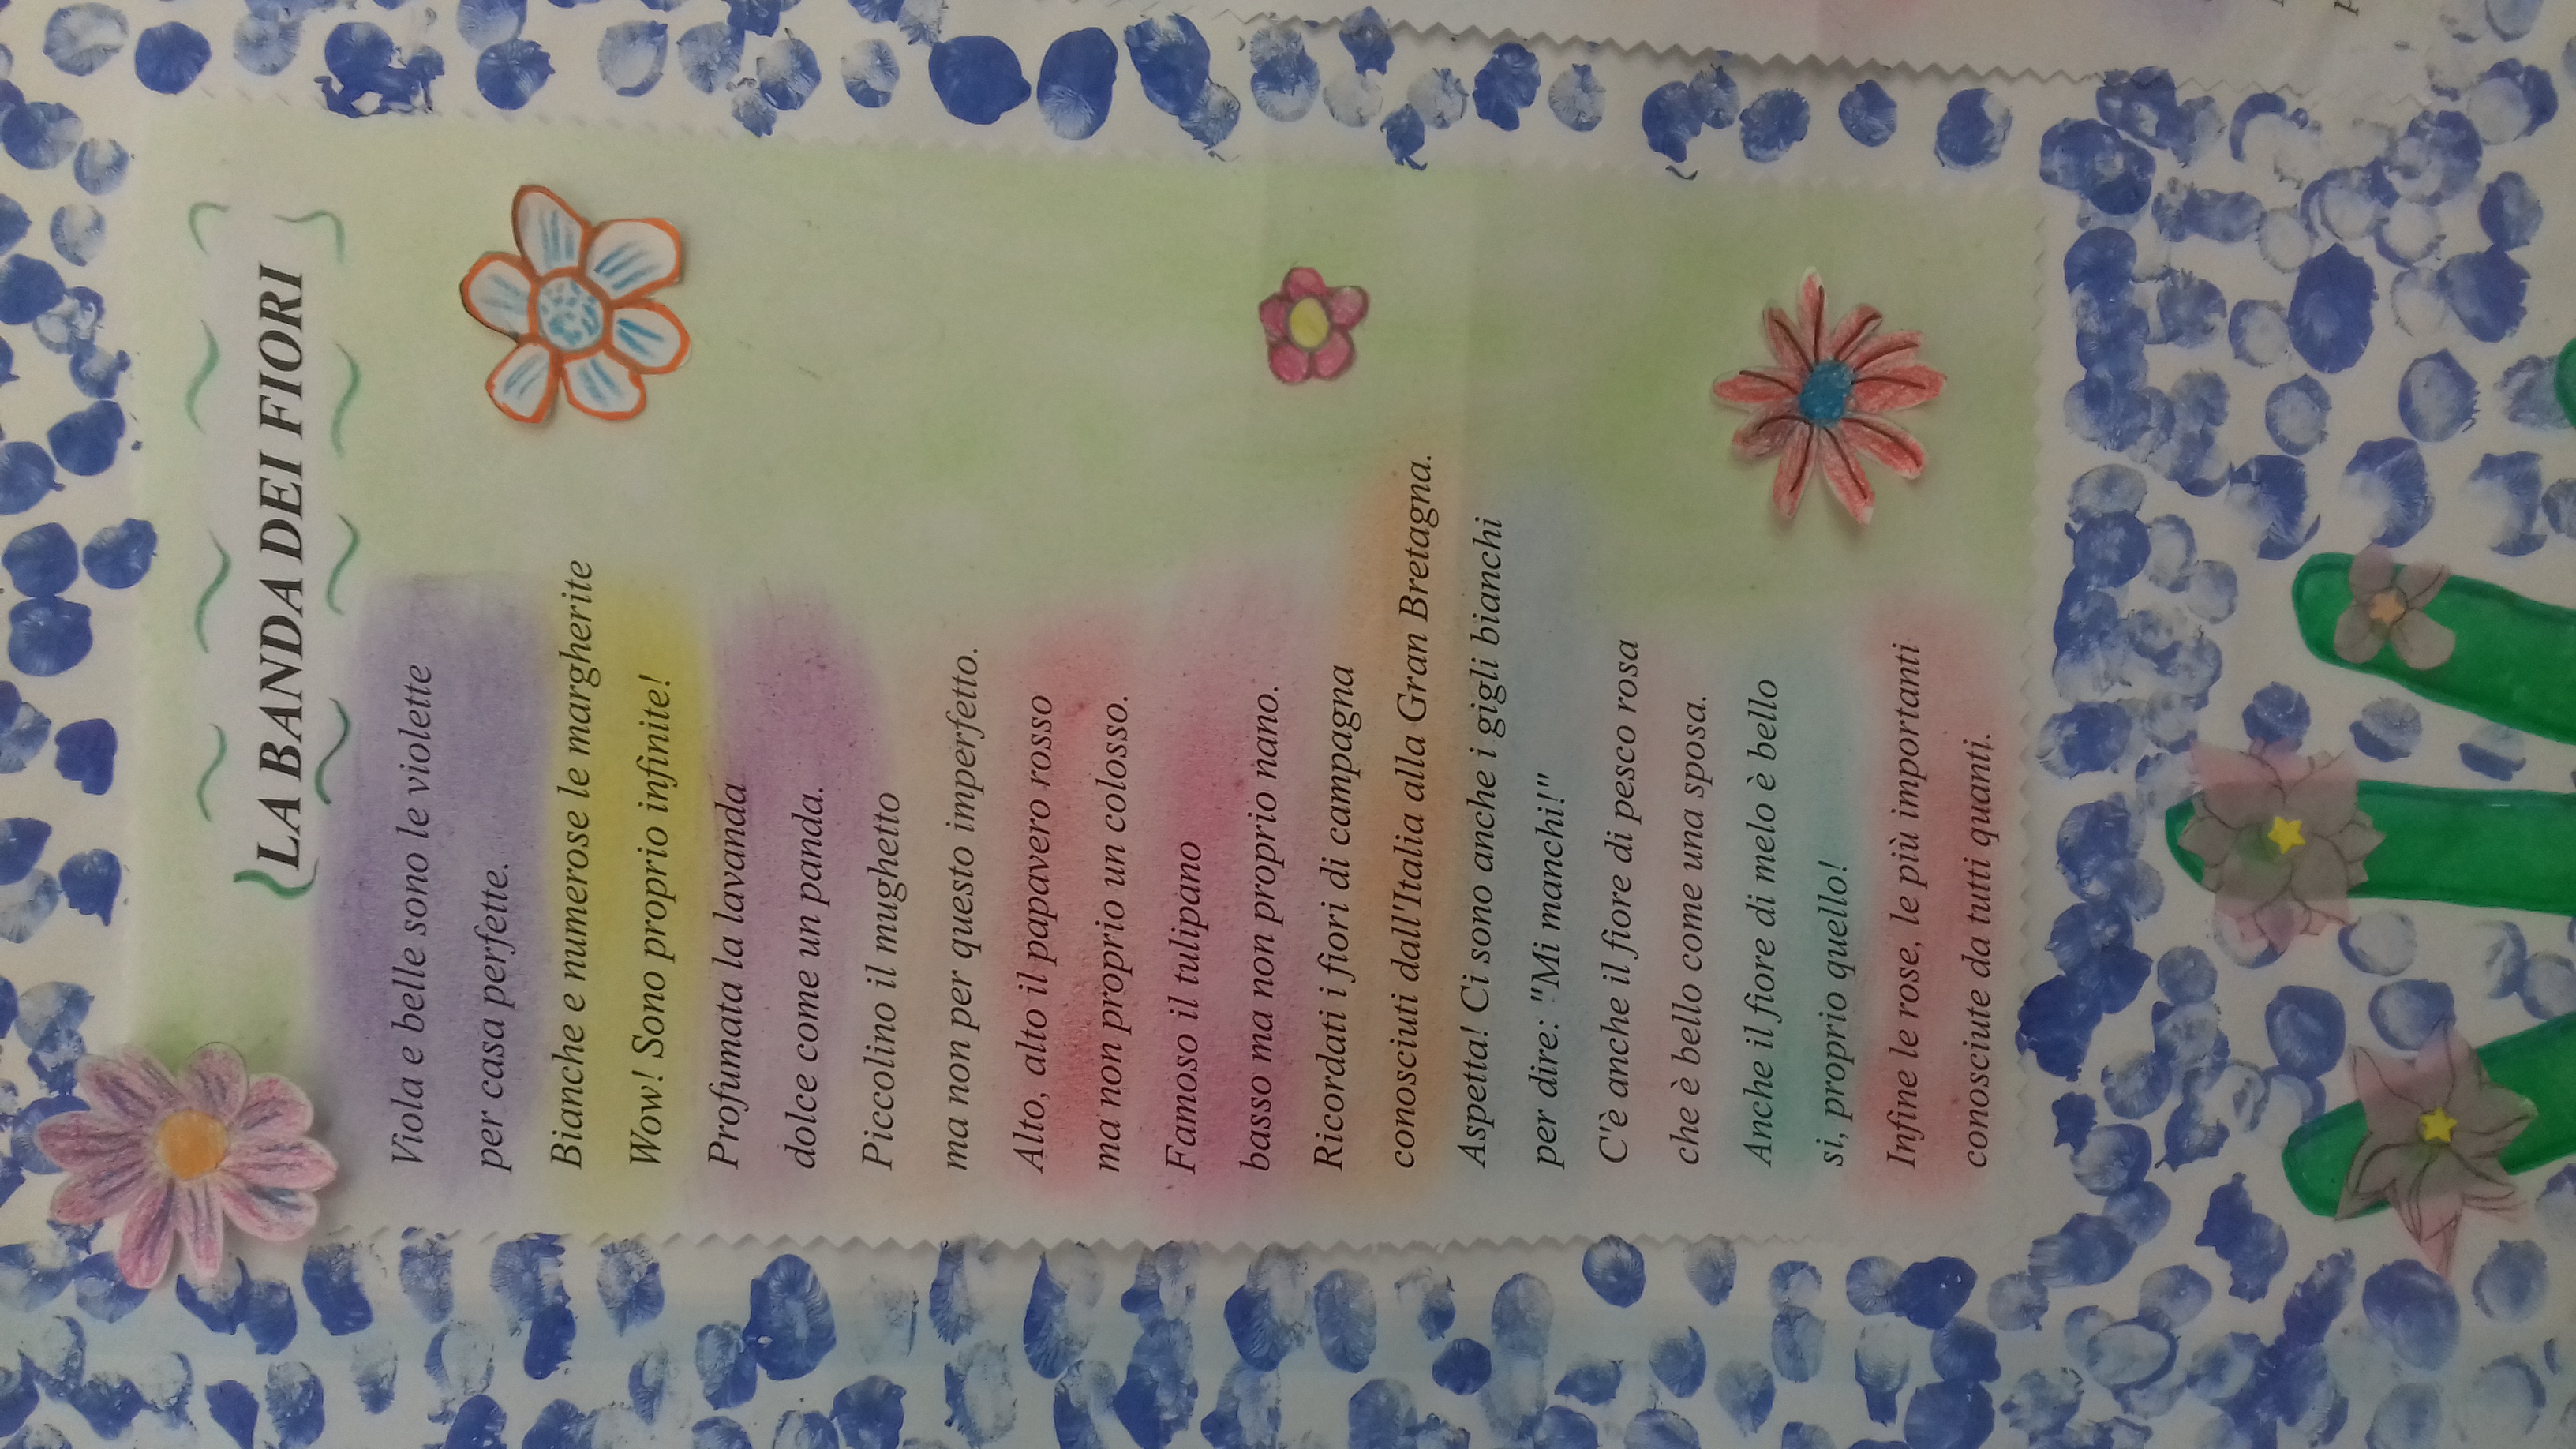 LA BANDA DEI FIORI
Viola e belle sono le violette
per casa perfette.
Bianche e numerose le margherite
Wow! Sono proprio infinite!
Profumata la lavanda
dolce come un panda.
Piccolino il mughetto
ma non per questo imperfetto.
Alto, alto il papavero rosso
ma non proprio un colosso.
Famoso il tulipano
basso ma non proprio nano.
Ricordati i fiori di campagna
conosciuti dall'Italia alla Gran Bretagna.
Aspetta! Ci sono anche i gigli bianchi
per dire: "Mi manchi!"
C'è anche il fiore di pesco rosa
che è bello come una sposa.
Anche il fiore di melo è bello
si, proprio quello!
Infine le rose, le più importanti
conosciute da tutti quanti.